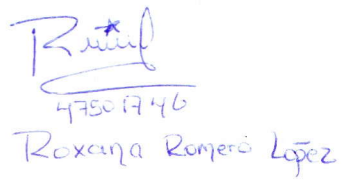 47501746
Roxana Romero Lopez